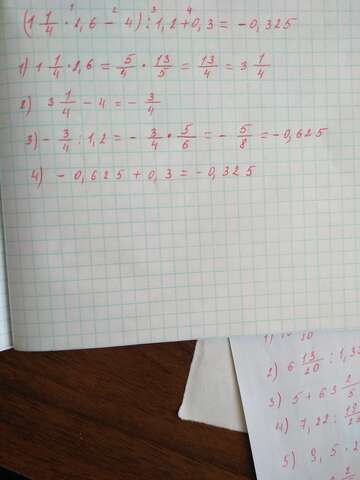 1 2 3 4
(1 1/4 · 2,6 - 4) : 1,2 + 0,3 = - 0,325
1) 1 1/4 · 2,6 = 5/4 · 13/5 = 13/4 = 3 1/4
2) 3 1/4 - 4 = - 3/4
3) - 3/4 : 1,2 = - 3/4 · 5/6 = - 5/8 = - 0,625
4) - 0,625 + 0,3 = - 0,325
2) 6 13/20 : 1,3
3) 5 + 63 2/5
4) 7,22 :
5) 9,5 · 2